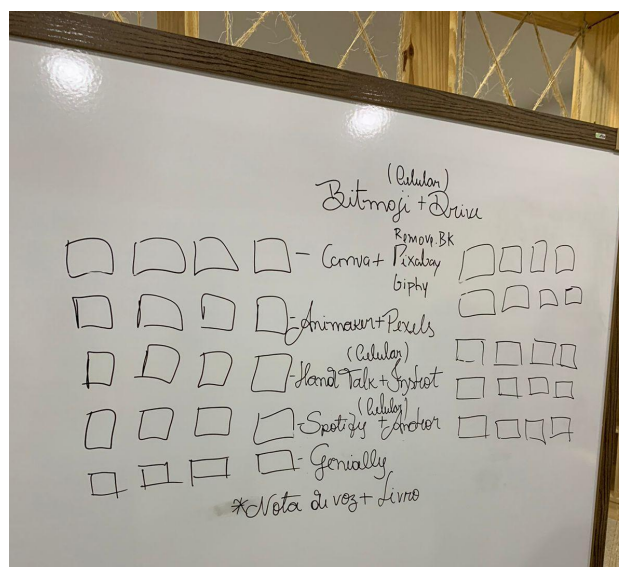 (Celular)
Bitmoji + Drive
Remove.BK
- Canva + Pixabay
Giphy
- Animaker + Pexels
(Celular)
- Hand Talk + Inshot
(Celular)
- Spotify + Anchor
- Genially
*Nota de voz + Livro